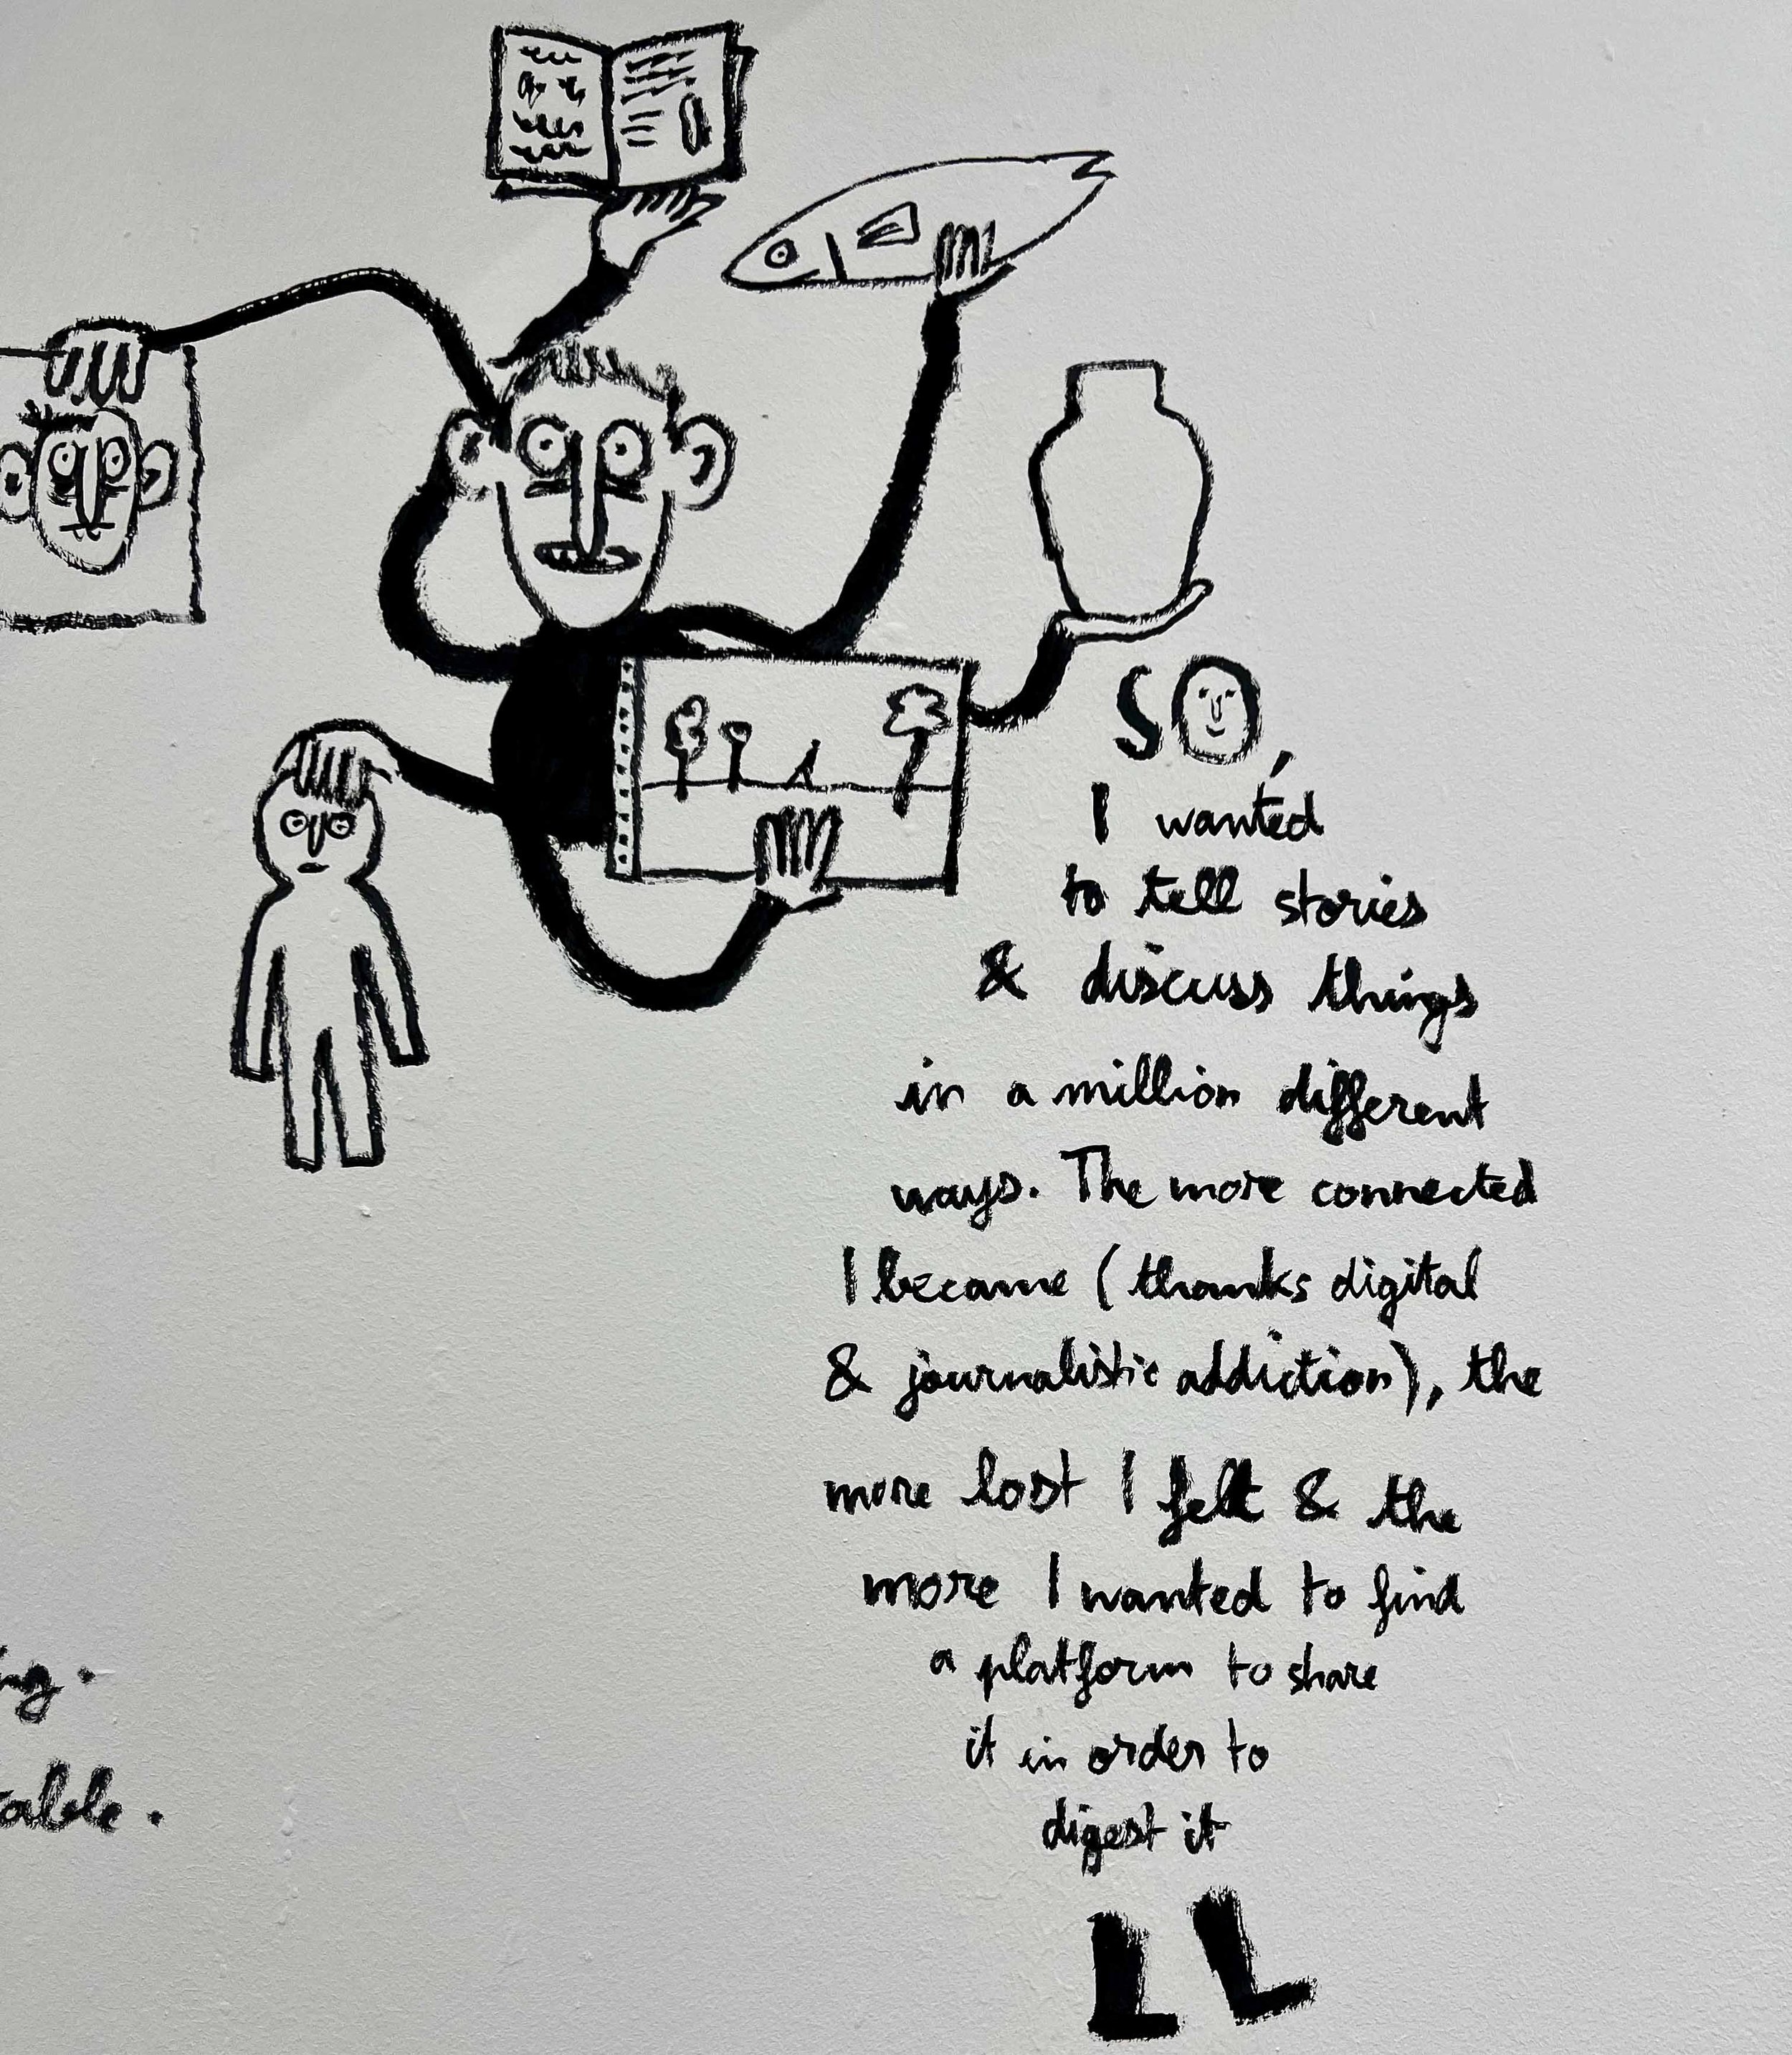 SO,
I wanted
to tell stories
& discuss things
in a million different
ways. The more connected
I became (thanks digital
& journalistic addiction), the
more lost I felt & the
more I wanted to find
a platform to share
it in order to
digest it